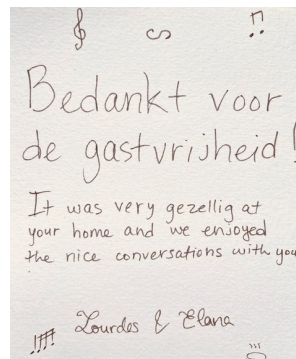 Bedankt voor
de gastvrijheid!
It was very gezellig at
your home and we enjoyed
the nice conversations with you
Lourdes & Elana